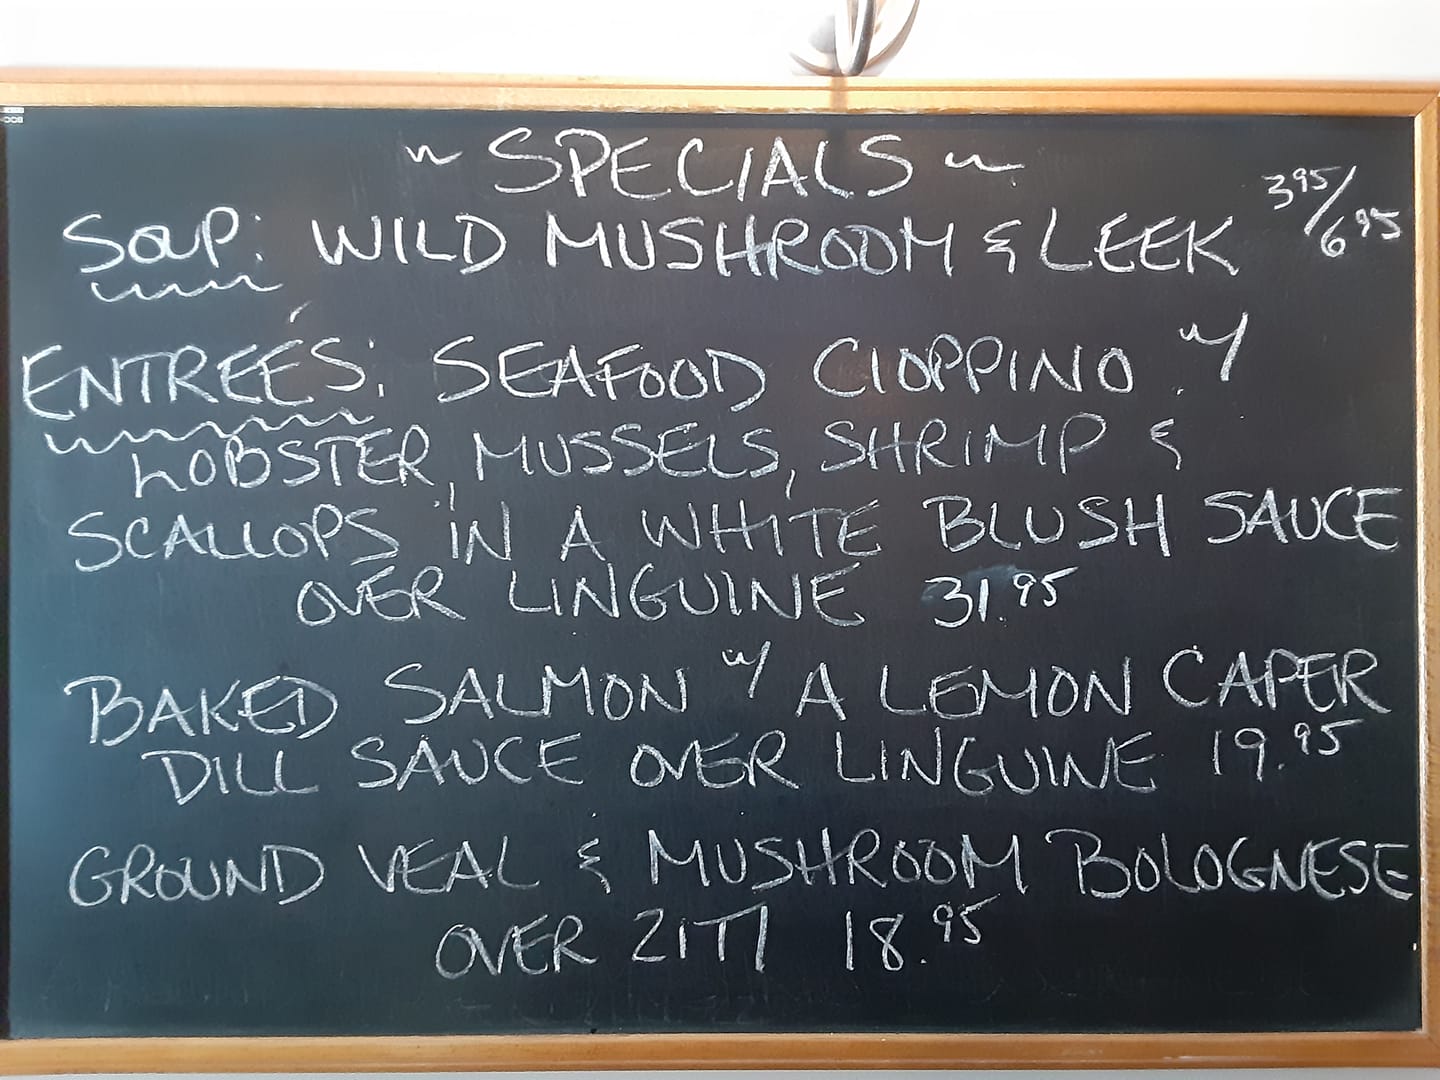 ~ SPECIALS ~
SOUP: WILD MUSHROOM & LEEK 3.95/6.95
ENTREÉS: SEAFOOD CIOPPINO w/
LOBSTER, MUSSELS, SHRIMP &
SCALLOPS IN A WHITE BLUSH SAUCE
OVER LINGUINE 31.95
BAKED SALMON w/ A LEMON CAPER
DILL SAUCE OVER LINGUINE 19.95
GROUND VEAL & MUSHROOM BOLOGNESE
OVER ZITI 18.95